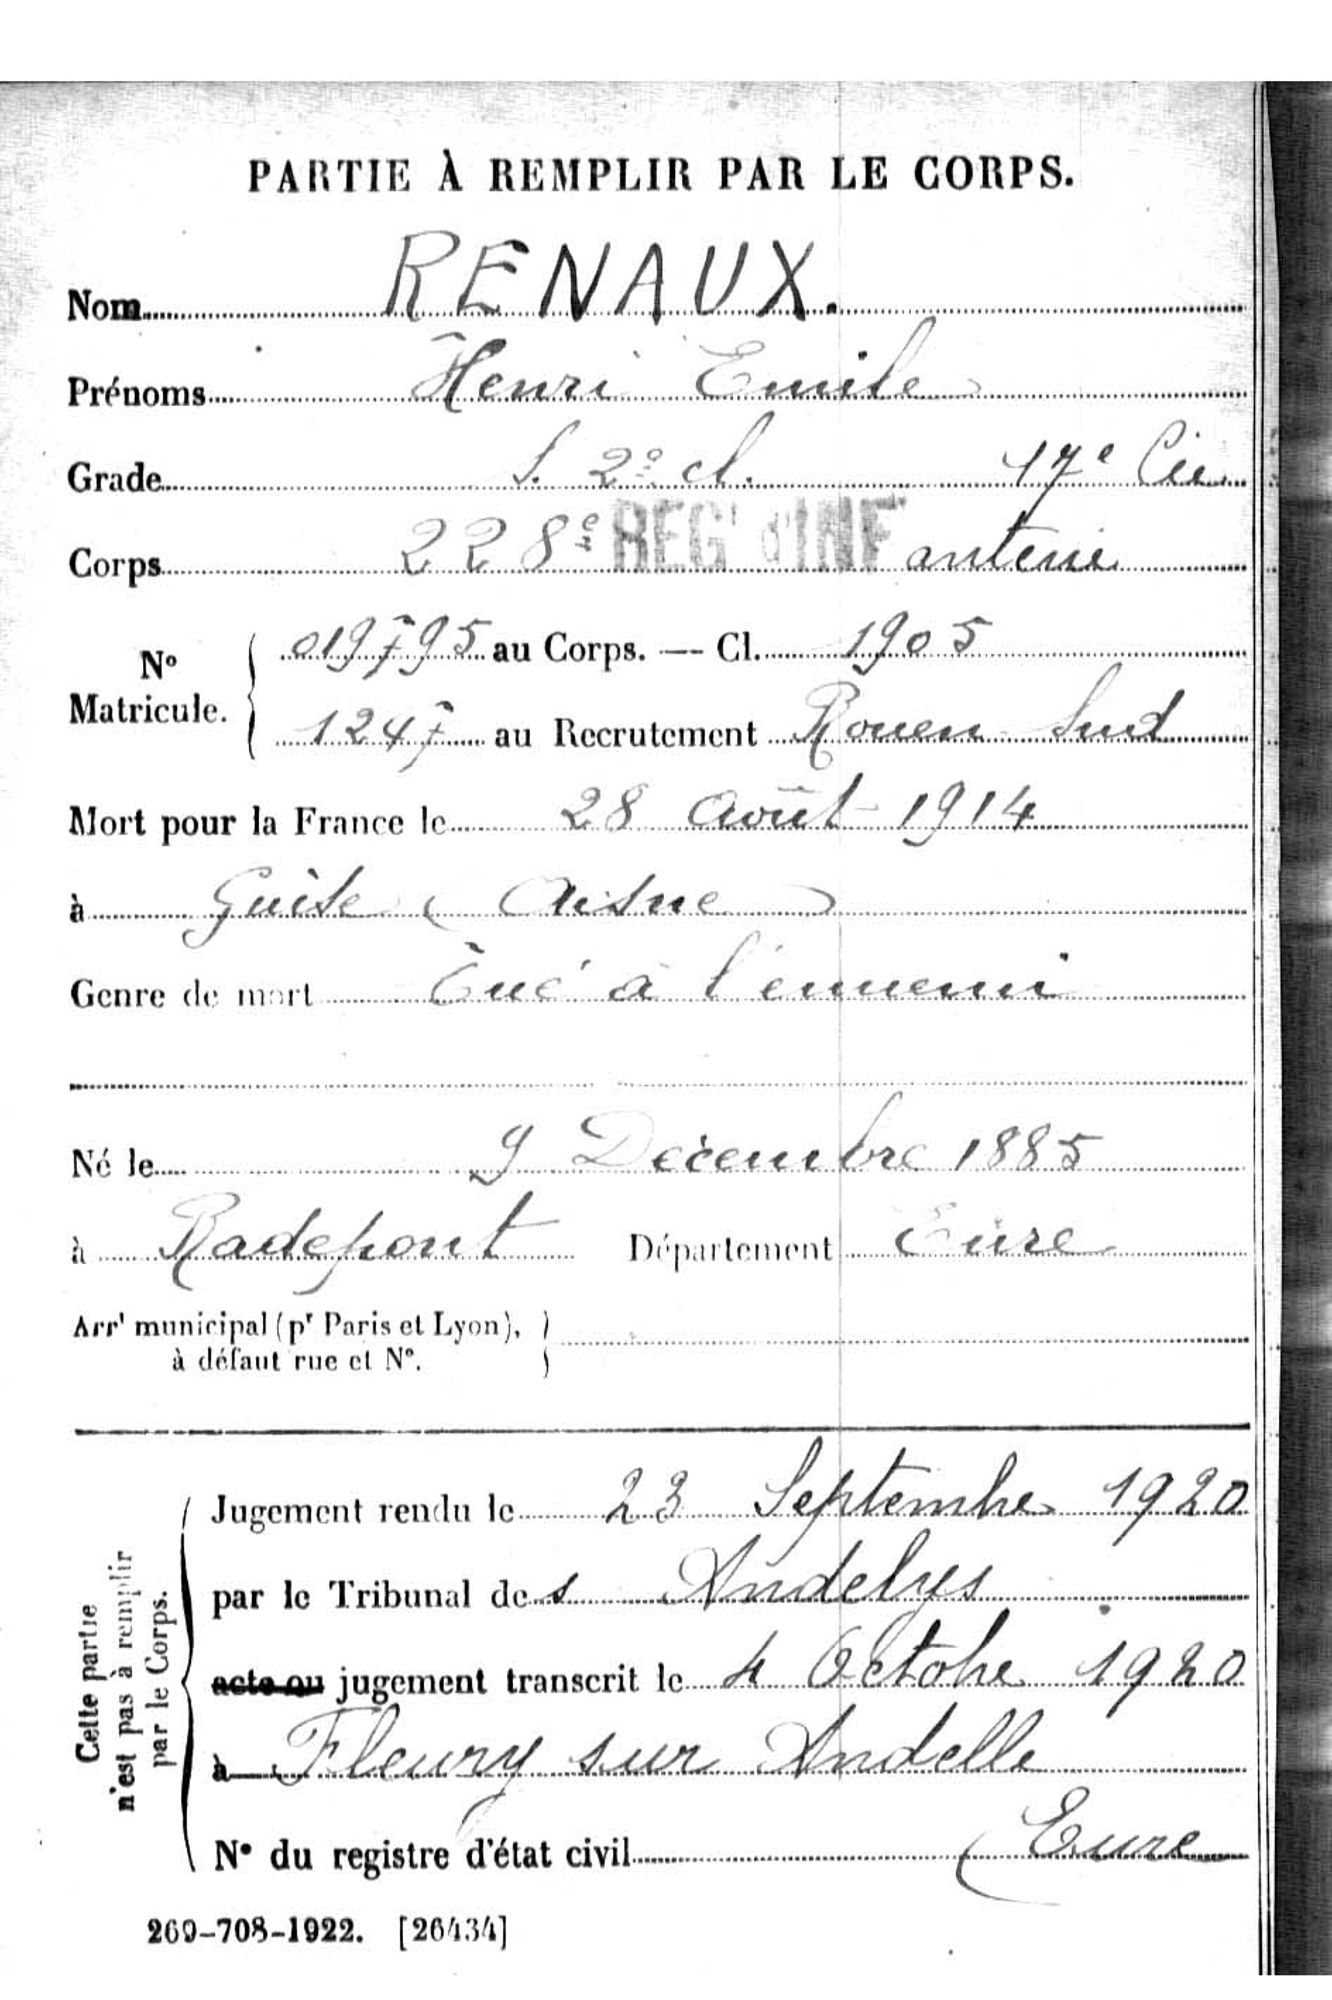 PARTIE À REMPLIR PAR LE CORPS.
Nom RENAUX.
Prénoms Henri Emile
Grade S. 2e cl. 17e Cie
Corps 228e REGt d'INF anterie
No Matricule. 019795 au Corps. — Cl. 1905
1247 au Recrutement Rouen Sud
Mort pour la France le 28 Août 1914
à Guise (Aisne)
Genre de mort Tué à l'ennemi
Né le 9 Décembre 1885
à Radepont Département Eure
Arrt municipal (pr Paris et Lyon),
à défaut rue et No.
Cette partie
n'est pas à remplir
par le Corps.
Jugement rendu le 23 Septembre 1920
par le Tribunal de s Andelys
acte ou jugement transcrit le 4 Octobre 1920
à Fleury sur Andelle
No du registre d'état civil (Eure
269-708-1922. [26434]